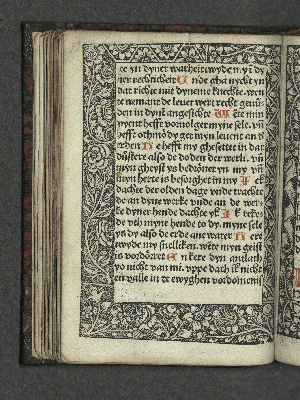 te yn dyner warheit twyde my ī dy
ner rechticheit Un̄ de gha nycht yn
dat richte mit dyneme knechte. wen
te nemant de leuet wert recht geuū
den in dynē angesichte Wēte min
vyent hefft vorvolget myne sele. vn̄
hefft othmōdyget myn leuent an d̓
erden He hefft my ghesettet in dat
dūster also de doden der werlt. vn̄
myn gheyst ys bedrōuet yn my vn̄
myn herte is besorghet in my Ick
dachte der olden dage vnde trachte
de an dyne werke vnde an de wer
ke dyner hende dachte yk Ik recke
de vth myne hende to dy. myne sele
ys dy also de erde ane water Here
twyde my snelliken. wēte myn geist
is vordōrret En kere dyn antlath
yo nicht van mi. vppe dath ik nicht
en valle in de ewyghen vordōmenis